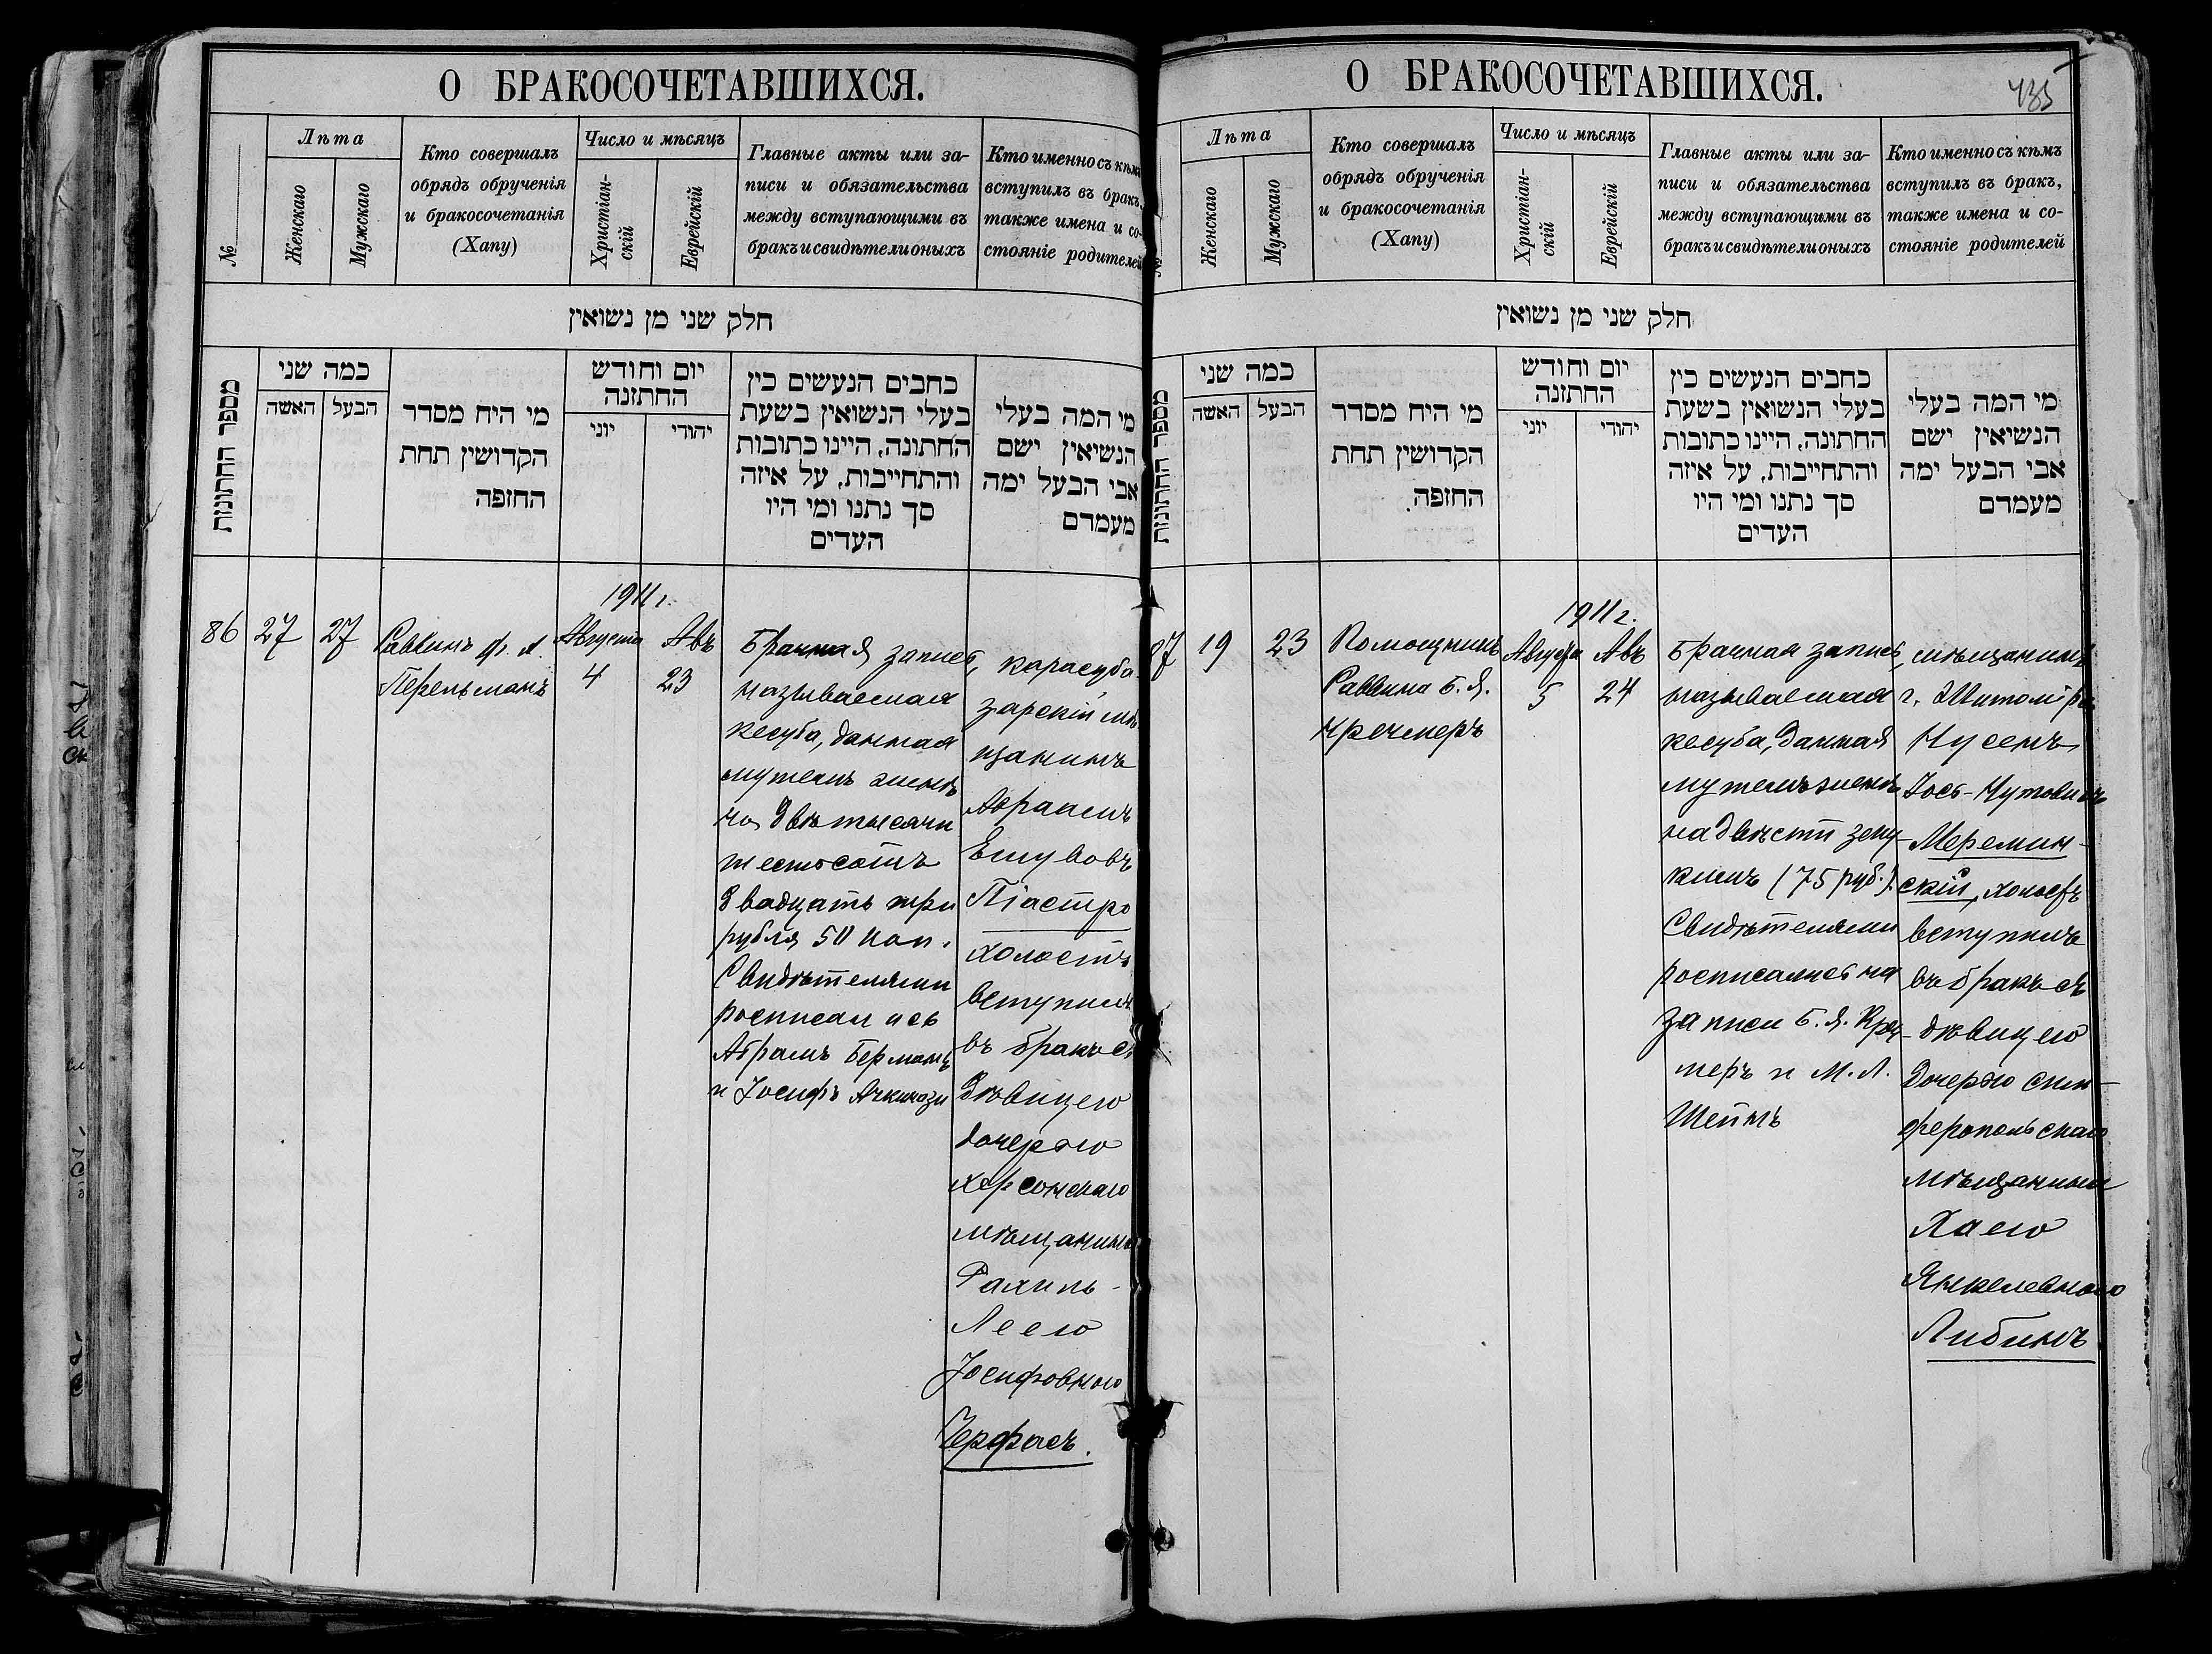 О БРАКОСОЧЕТАВШИХСЯ.
№
Лѣта
Женскаго
Мужскаго
Кто совершалъ
обрядъ обрученія
и бракосочетанія
(Хапу)
Число и мѣсяцъ
Христіан-
скій
Еврейскій
Главные акты или за-
писи и обязательства
между вступающими въ
бракъ и свидѣтели оныхъ
Кто именно съ кѣмъ
вступилъ въ бракъ,
также имена и со-
стояніе родителей
חלק שני מן נשואין
מספר החתונות
כמה שני
האשה
הבעל
מי היח מסדר
הקדושין תחת
החזפה
יום וחודש
החתזנה
יוני
יהודי
כחבים הנעשים כין
בעלי הנשואין בשעת
החתונה, היינו כתובות
והתחייבות, על איזה
סך נתנו ומי היו
העדים
מי המה בעלי
הנשיאין ישם
אבי הבעל ימה
מעמדם
86
27
27
Раввинъ Ф. Л.
Перельманъ
1911 г.
Августа
4
Авъ
23
Брачная запись,
называемая
кесуба, данная
мужемъ женѣ
на двѣ тысячи
шестьсотъ
двадцать три
рубля 50 коп.
Свидѣтелями
росписались
Абрамъ Берманъ
и Іосифъ Ачкинази
карасуба-
зарскій мѣ-
щанинъ
Авраамъ
Ешувовъ
Піастро
холостъ
вступилъ
въ бракъ съ
дѣвицею
дочерью
херсонскаго
мѣщанина
Рахиль-
Леею
Іосифовною
Черфасъ.
О БРАКОСОЧЕТАВШИХСЯ.
435
№
Лѣта
Женскаго
Мужскаго
Кто совершалъ
обрядъ обрученія
и бракосочетанія
(Хапу)
Число и мѣсяцъ
Христіан-
скій
Еврейскій
Главные акты или за-
писи и обязательства
между вступающими въ
бракъ и свидѣтели оныхъ
Кто именно съ кѣмъ
вступилъ въ бракъ,
также имена и со-
стояніе родителей
חלק שני מן נשואין
מספר החתונות
כמה שני
האשה
הבעל
מי היח מסדר
הקדושין תחת
החזפה.
יום וחודש
החתזנה
יוני
יהודי
כחבים הנעשים כין
בעלי הנשואין בשעת
החתונה, היינו כתובות
והתחייבות, על איזה
סך נתנו ומי היו
העדים
מי המה בעלי
הנשיאין ישם
אבי הבעל ימה
מעמדם
87
19
23
Помощникъ
Раввина Б. Я.
Кречмеръ
1911 г.
Августа
5
Авъ
24
Брачная запись,
называемая
кесуба, данная
мужемъ женѣ
на двѣсти зену-
кимъ (75 руб.).
Свидѣтелями
росписались на
записи Б. Я. Креч-
меръ и М. Л.
Шейнъ
мѣщанинъ
г. Житоміра
Нусенъ
Іось-Нутовичъ
Меремин-
скій, холостъ
вступилъ
въ бракъ съ
дѣвицею
дочерью сим-
феропольскаго
мѣщанина
Хаею
Янкелевною
Либинъ